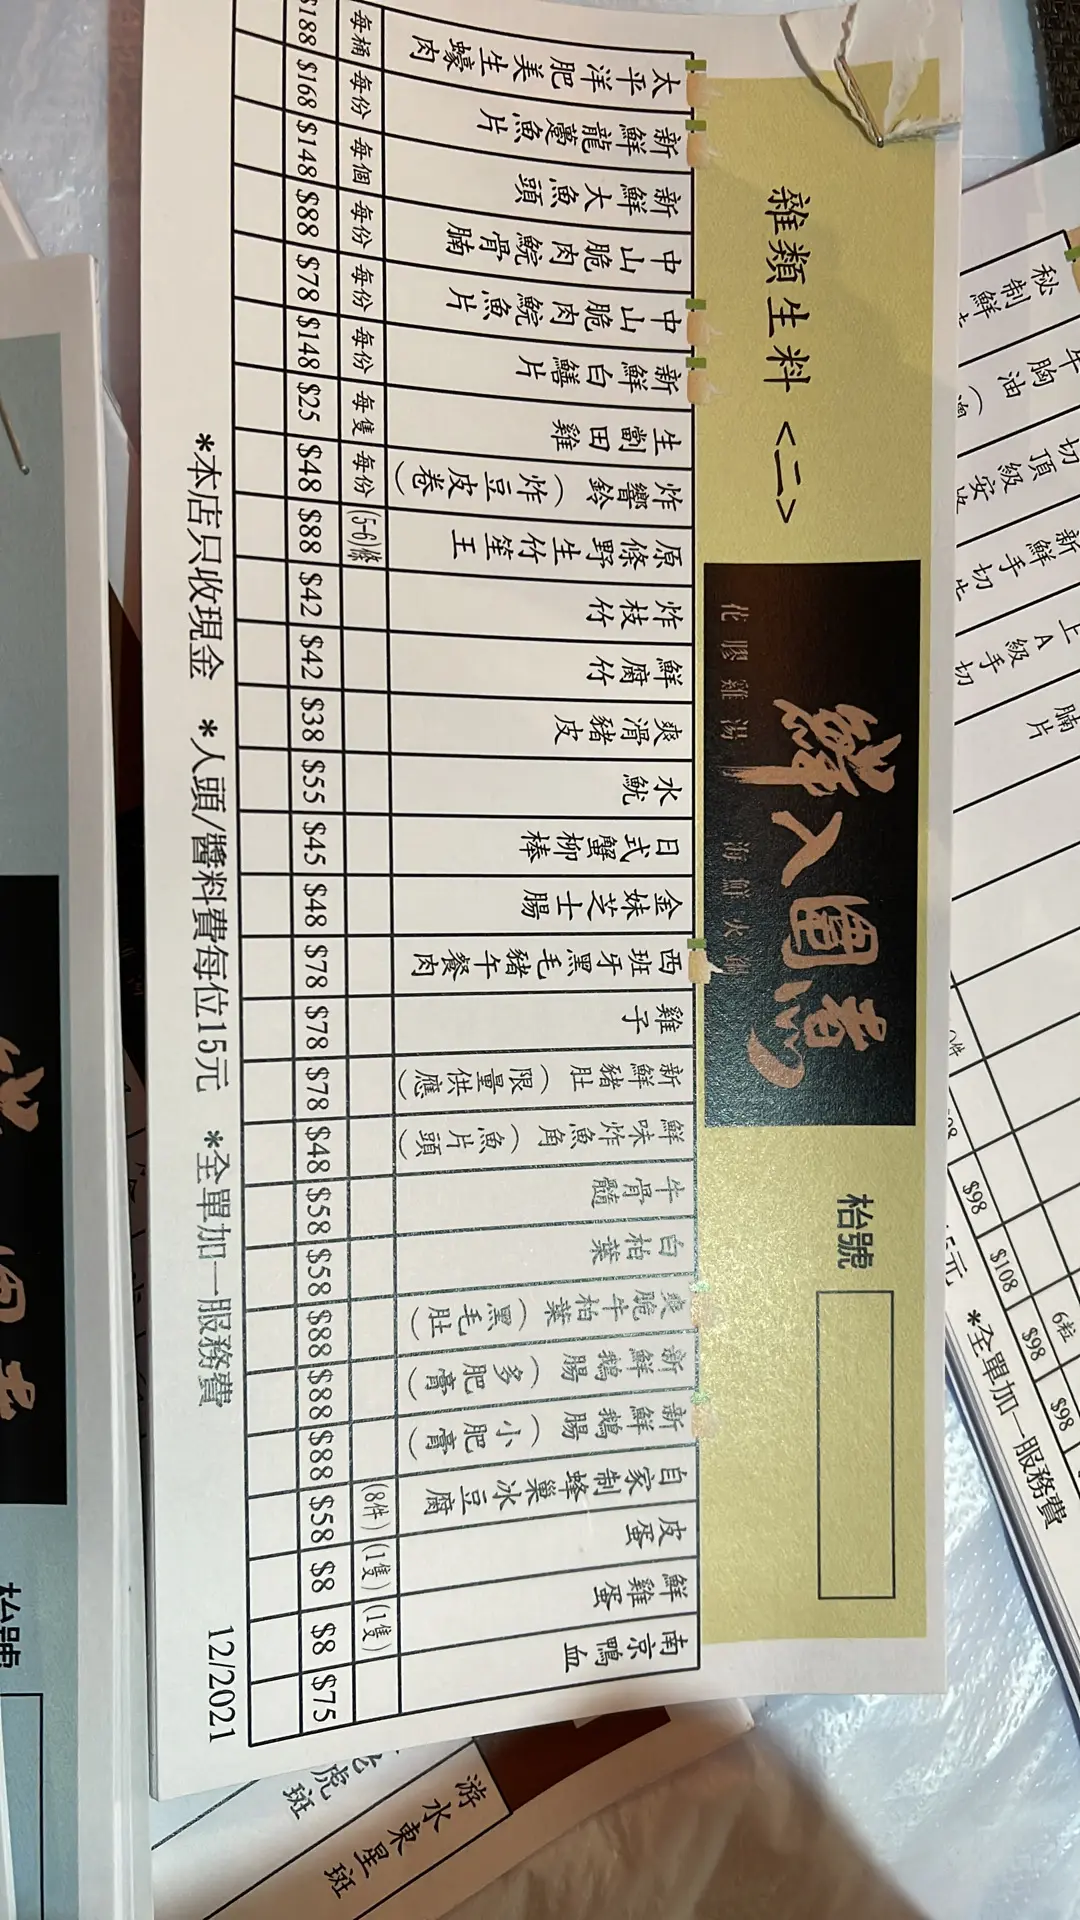 雜類生料 <二>
鮮入圍煮
花膠雞湯 海鮮火鍋
枱號
太平洋肥美生蠔肉 每桶 $188
新鮮龍躉魚片 每份 $168
新鮮大魚頭 每個 $148
中山脆肉鯇骨腩 每份 $88
中山脆肉鯇魚片 每份 $78
新鮮白鱔片 每份 $148
生劏田雞 每隻 $25
炸響鈴（炸豆皮卷） 每份 $48
原條野生竹笙王 (5-6)條 $88
炸枝竹 $42
鮮腐竹 $42
爽滑豬皮 $38
水魷 $55
日式蟹柳棒 $45
金妹芝士腸 $48
西班牙黑毛豬午餐肉 $78
雞子 $78
新鮮豬肚（限量供應） $78
鮮味炸魚角（魚片頭） $48
牛骨髓 $58
白柏葉 $58
爽脆牛柏葉（黑毛肚） $88
新鮮鵝腸（多肥膏） $88
新鮮鵝腸（小肥膏） $88
自家制蜂巢冰豆腐 (8件) $58
皮蛋 (1隻) $8
鮮雞蛋 (1隻) $8
南京鴨血 $75
*本店只收現金 *人頭/醬料費每位15元 *全單加一服務費
12/2021
$98
$108
6粒
$98
$98
*全單加一服務費
枱號
虎斑
游水東星斑